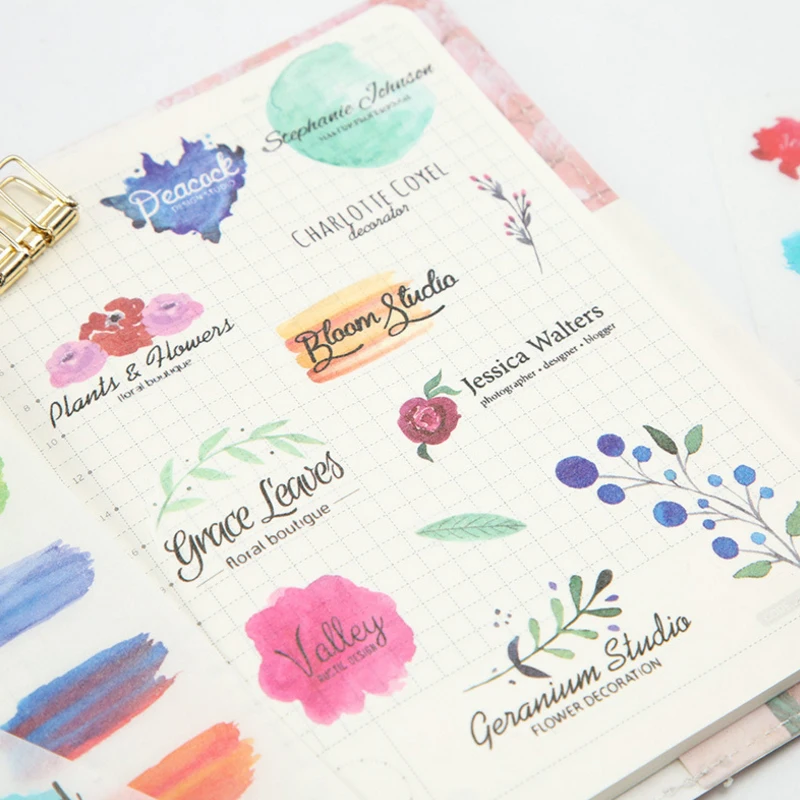 Stephanie Johnson
Peacock
DESIGN STUDIO
CHARLOTTE COYEL
decorator
Bloom Studio
Plants & Flowers
floral boutique
Jessica Walters
photographer • designer • blogger
Grace Leaves
floral boutique
Valley
Geranium Studio
FLOWER DECORATION
8
10
12
14